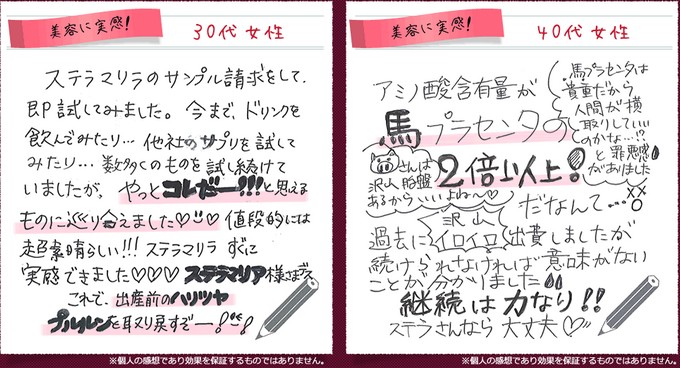 美容に実感!
30代 女性
ステラマリラのサンプル請求をして、
即試してみました。今まで、ドリンクを
飲んでみたり…他社のサプリを試して
みたり…数多くのものを試し続けて
いましたが、やっとコレだー!!!と思える
ものに巡り会えました♡☺♡値段的には
超素晴らしい!!!ステラマリラ すぐに
実感できました♡♡♡ステラマリア様さまぁ
これで、出産前のハリツヤ
プルルンを取り戻すぞー!
※個人の感想であり効果を保証するものではありません。
美容に実感!
40代 女性
アミノ酸含有量が
馬プラセンタの
2倍以上!
だなんて…
馬プラセンタは
貴重だから
人間が横
取りしていい
のかな…!?
と罪悪感
がありました
××
○
さんは
沢山胎盤
あるからいいよね〜♡
過去に沢山イロイロ出費しましたが
続けられなければ意味がない
ことが分かりました
継続は力なり!!
ステラさんなら大丈夫♡
※個人の感想であり効果を保証するものではありません。